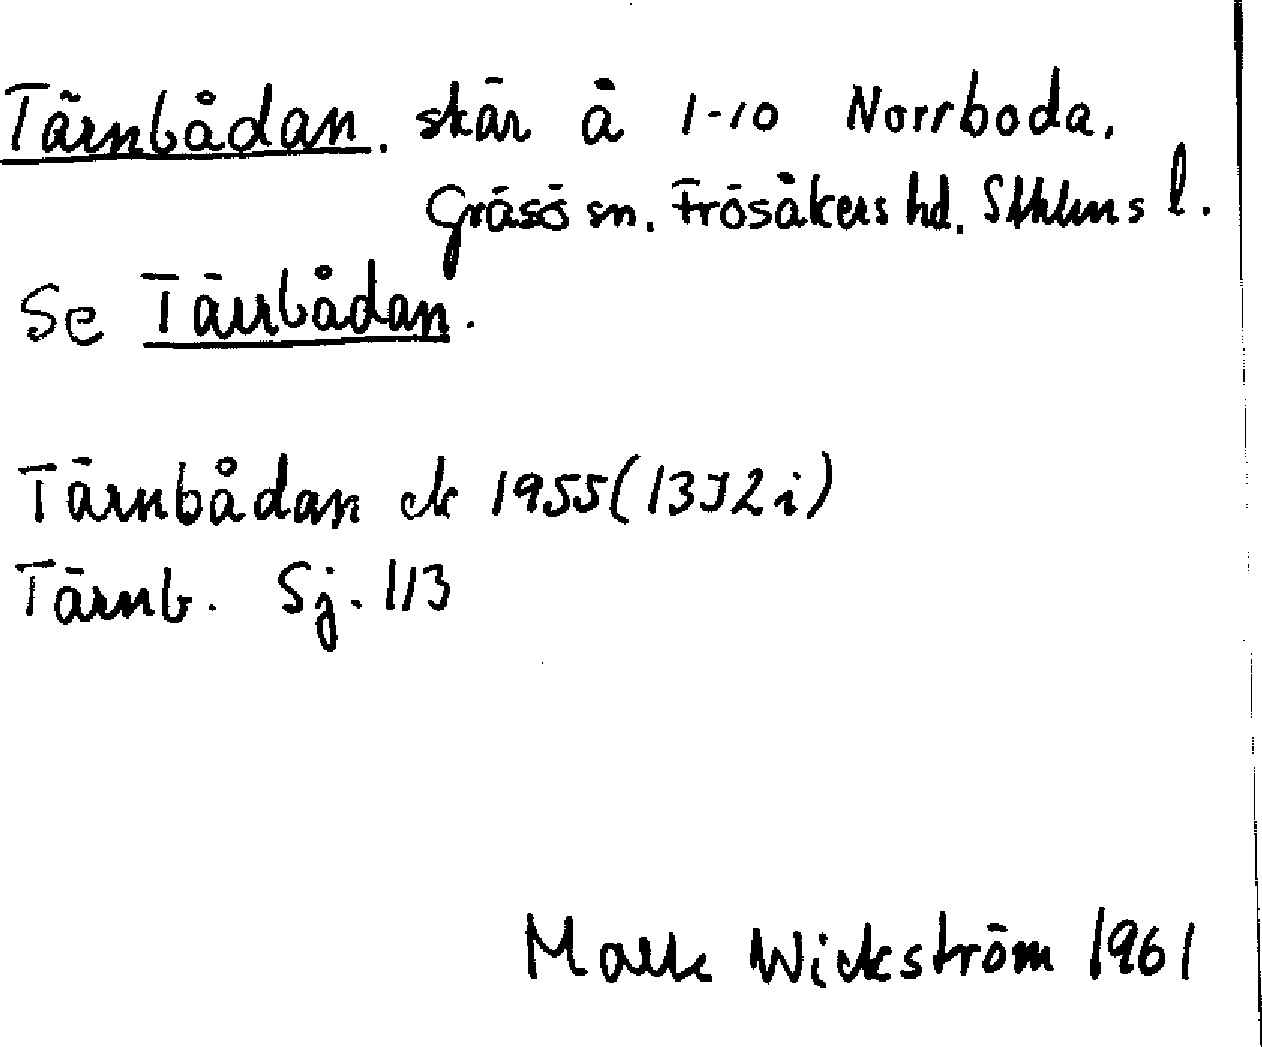 Tärnbådan. skär å 1-10 Norrboda.
Gräsö sn. Frösåkers hd. Sthlms l.
Se Tärrbådan.
Tärnbådan ek 1955(13J2i)
Tärnb. Sj. 113
Wickström 1961